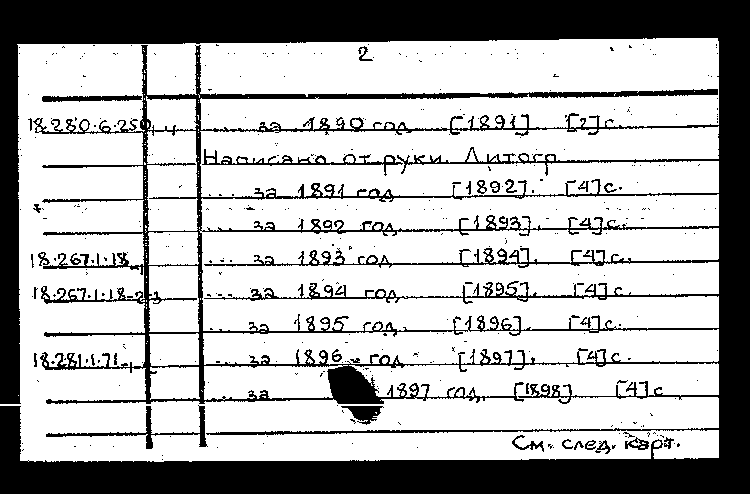 2
18.280.6.250 ... за 1890 год [1891]. [2]с.
Написано от руки. Литогр
... за 1891 год [1892]. [4]с.
... за 1892 год [1893]. [4]с.
18.267.1.18 ... за 1893 год [1894]. [4]с.
18.267.1.18-2-3 ... за 1894 год [1895]. [4]с.
... за 1895 год. [1896]. [4]с.
18.281.1.71 ... за 1896 год [1897]. [4]с.
... за 1897 год. [1898] [4]с
См. след. карт.